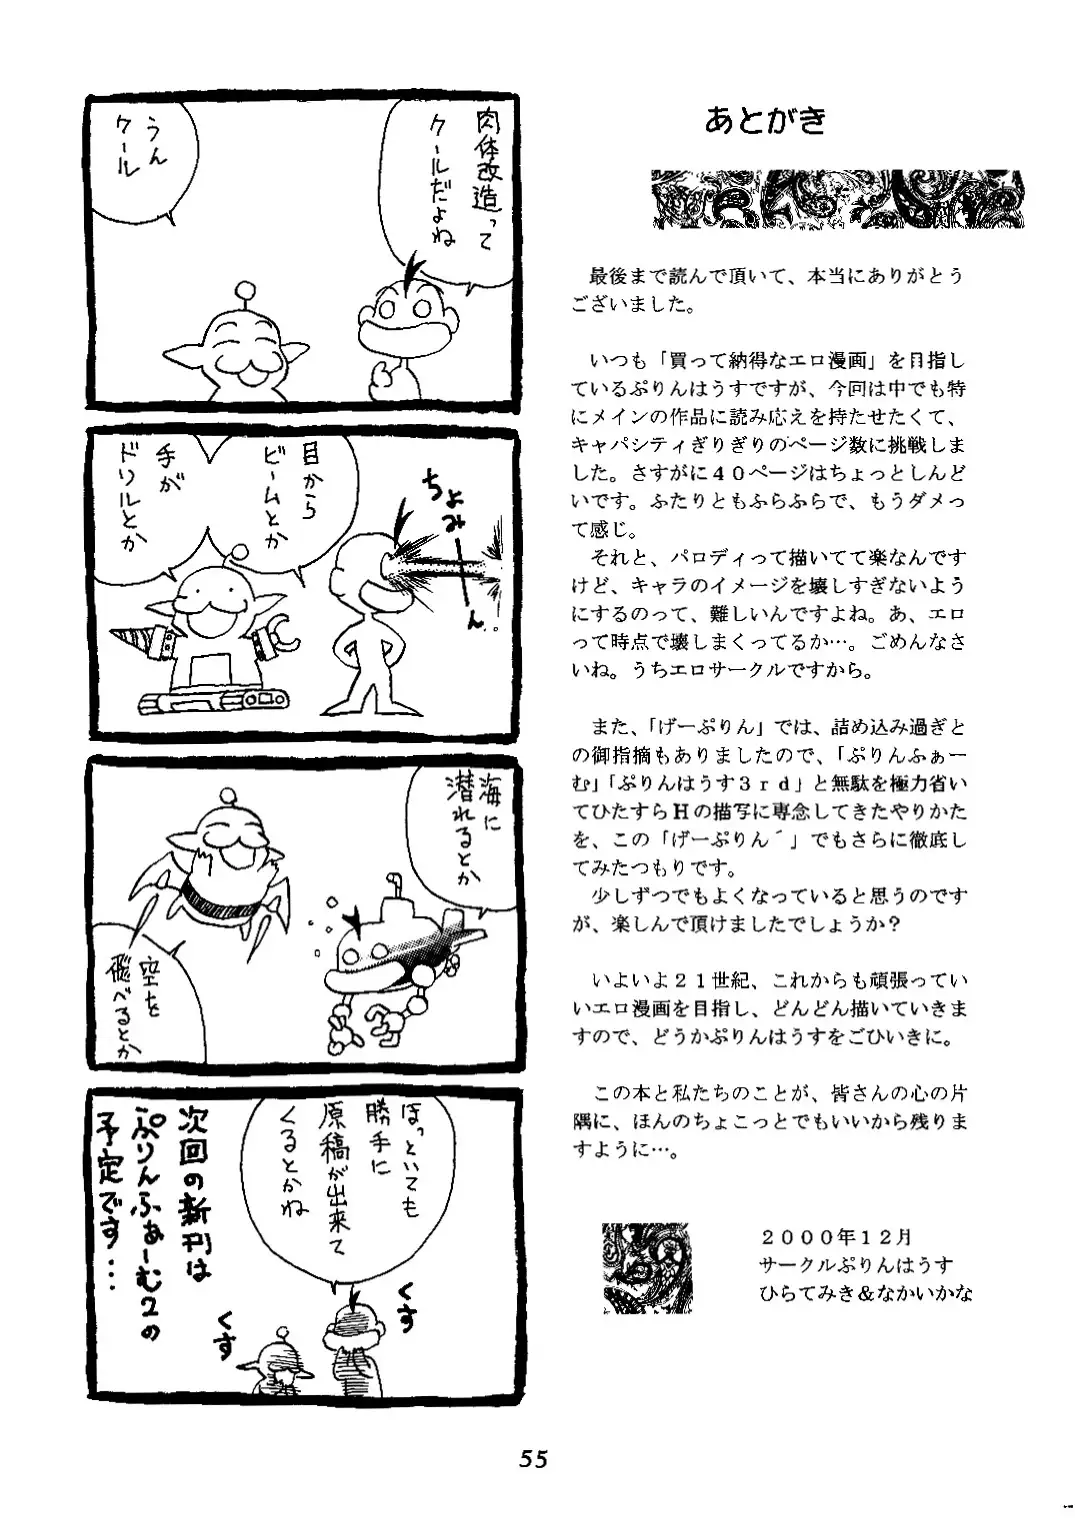 肉体改造って
クールだよね
うん
クール
目から
ビームとか
手が
ドリルとか
ちょみーん..
海に
潜れるとか
空を
飛べるとか
ほっといても
勝手に
原稿が出来て
くるとかね
くす
くす
次回の新刊は
ぷりんふぁーむ2の
予定です・・・
あとがき
最後まで読んで頂いて、本当にありがとう
ございました。
いつも「買って納得なエロ漫画」を目指し
ているぷりんはうすですが、今回は中でも特
にメインの作品に読み応えを持たせたくて、
キャパシティぎりぎりのページ数に挑戦しま
した。さすがに40ページはちょっとしんど
いです。ふたりともふらふらで、もうダメっ
て感じ。
それと、パロディって描いてて楽なんです
けど、キャラのイメージを壊しすぎないよう
にするのって、難しいんですよね。あ、エロ
って時点で壊しまくってるか…。ごめんなさ
いね。うちエロサークルですから。
また、「げーぷりん」では、詰め込み過ぎと
の御指摘もありましたので、「ぷりんふぁー
む」「ぷりんはうす3rd」と無駄を極力省い
てひたすらHの描写に専念してきたやりかた
を、この「げーぷりん´」でもさらに徹底し
てみたつもりです。
少しずつでもよくなっていると思うのです
が、楽しんで頂けましたでしょうか?
いよいよ21世紀、これからも頑張ってい
いエロ漫画を目指し、どんどん描いていきま
すので、どうかぷりんはうすをごひいきに。
この本と私たちのことが、皆さんの心の片
隅に、ほんのちょこっとでもいいから残りま
すように…。
2000年12月
サークルぷりんはうす
ひらてみき&なかいかな
55